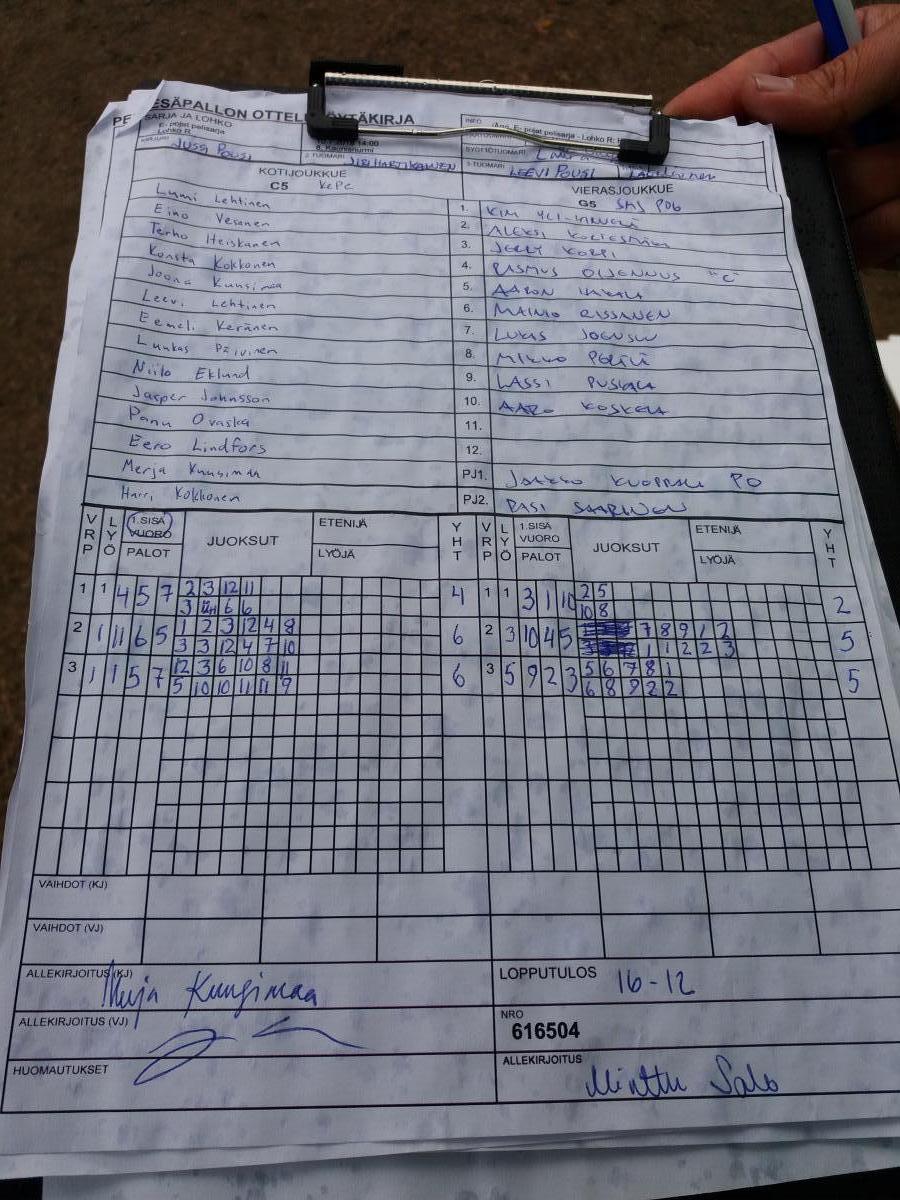 PE
ESÄPALLON OTTELUPÖYTÄKIRJA
SARJA JA LOHKO
E- pojat pelisarja
Lohko R
INFO
E- pojat pelisarja - Lohko R:
JUSSI POUSI
2-TUOMARI
JIRI HARTIKAINEN
SYÖTTÖTUOMARI
3-TUOMARI
LEEVI POUSI
KOTIJOUKKUE
C5 KePe
VIERASJOUKKUE
G5
Lumi Lehtinen
Eino Vesanen
Terho Heiskanen
Konsta Kokkonen
Joona Kuusimaa
Leevi Lehtinen
Eemeli Keränen
Luukas Päivinen
Niilo Eklund
Jasper Johnsson
Panu Ovaska
Eero Lindfors
Merja Kuusimaa
Harri Kokkonen
1. KIM
2. ALEKSI
3. JERRY KORPI
4. RASMUS OIJENNUS "C"
5. AARON
6. MAINIO RISSANEN
7. LUKAS JOENSUU
8. MIKKO
9. LASSI PUSKALA
10. AARO KOSKELA
11.
12.
PJ1. JAAKKO KUOPPALA PO
PJ2. PASI SAARINEN
VRP LYÖ 1.SISÄ VUORO PALOT JUOKSUT ETENIJÄ LYÖJÄ YHT VRP LYÖ 1.SISÄ VUORO PALOT JUOKSUT ETENIJÄ LYÖJÄ YHT
1 1 4 5 7 2 3 12 11 4 1 1 3 1 10 2 5 2
3 6 6 10 8
2 1 11 6 5 1 2 3 12 4 8 6 2 3 10 4 5 7 8 9 1 2 5
3 3 12 4 7 10 1 1 2 2 3
3 1 1 5 7 12 3 6 10 8 11 6 3 5 9 2 3 5 6 7 8 1 5
5 10 10 11 11 9 6 8 9 2 2
VAIHDOT (KJ)
VAIHDOT (VJ)
ALLEKIRJOITUS (KJ) Merja Kuusimaa
LOPPUTULOS 16-12
ALLEKIRJOITUS (VJ)
NRO
616504
HUOMAUTUKSET
ALLEKIRJOITUS
Minttu Salo